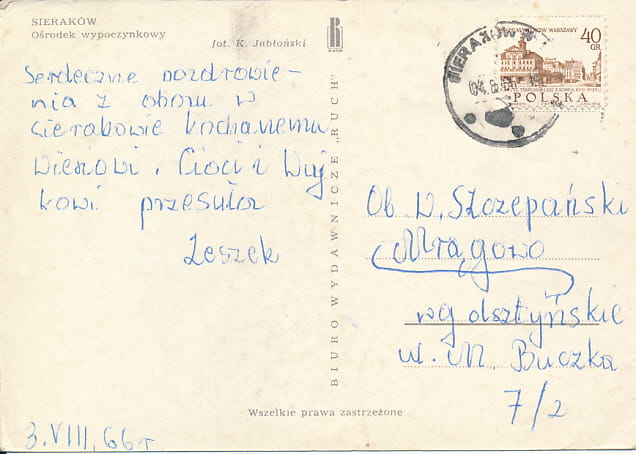 SIERAKÓW
Ośrodek wypoczynkowy
fot. K. Jabłoński
Serdeczne pozdrowie-
nia z obozu w
Sierakowie kochanemu
Wiesiowi, Cioci i Wuj
kowi przesyła
Leszek
3.VIII,66r
BIURO WYDAWNICZE „RUCH"
Wszelkie prawa zastrzeżone
SIERAKÓW
40
GR
POLSKA
Ob. W. Szczepański
Mrągowo
wg olsztyńskie
ul. M. Buczka
7/2